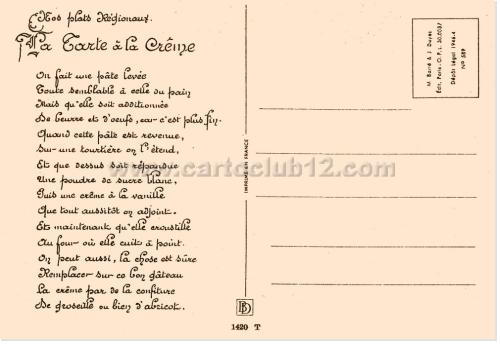 Nos plats Régionaux.
La Tarte à la Crême
On fait une pâte levée
Toute semblable à celle du pain
Mais qu'elle soit additionnée
De beurre et d'oeufs, car c'est plus fin.
Quand cette pâte est revenue,
Sur une tourtière on l'étend,
Et que dessus soit répandue
Une poudre de sucre blanc,
Puis une crême à la vanille
Que tout aussitôt on adjoint.
Et maintenant qu'elle croustille
Au four où elle cuit à point.
On peut aussi, la chose est sûre
Remplacer sur ce bon gâteau
La crême par de la confiture
De groseille ou bien d'abricot.
IMPRIMÉ EN FRANCE
BD
1420 T
M. Barré & J. Dayez
Édit. Paris - O.P.L. 30.0037
Dépôt Légal 1946-4
N° 589
www.cartoclub12.com